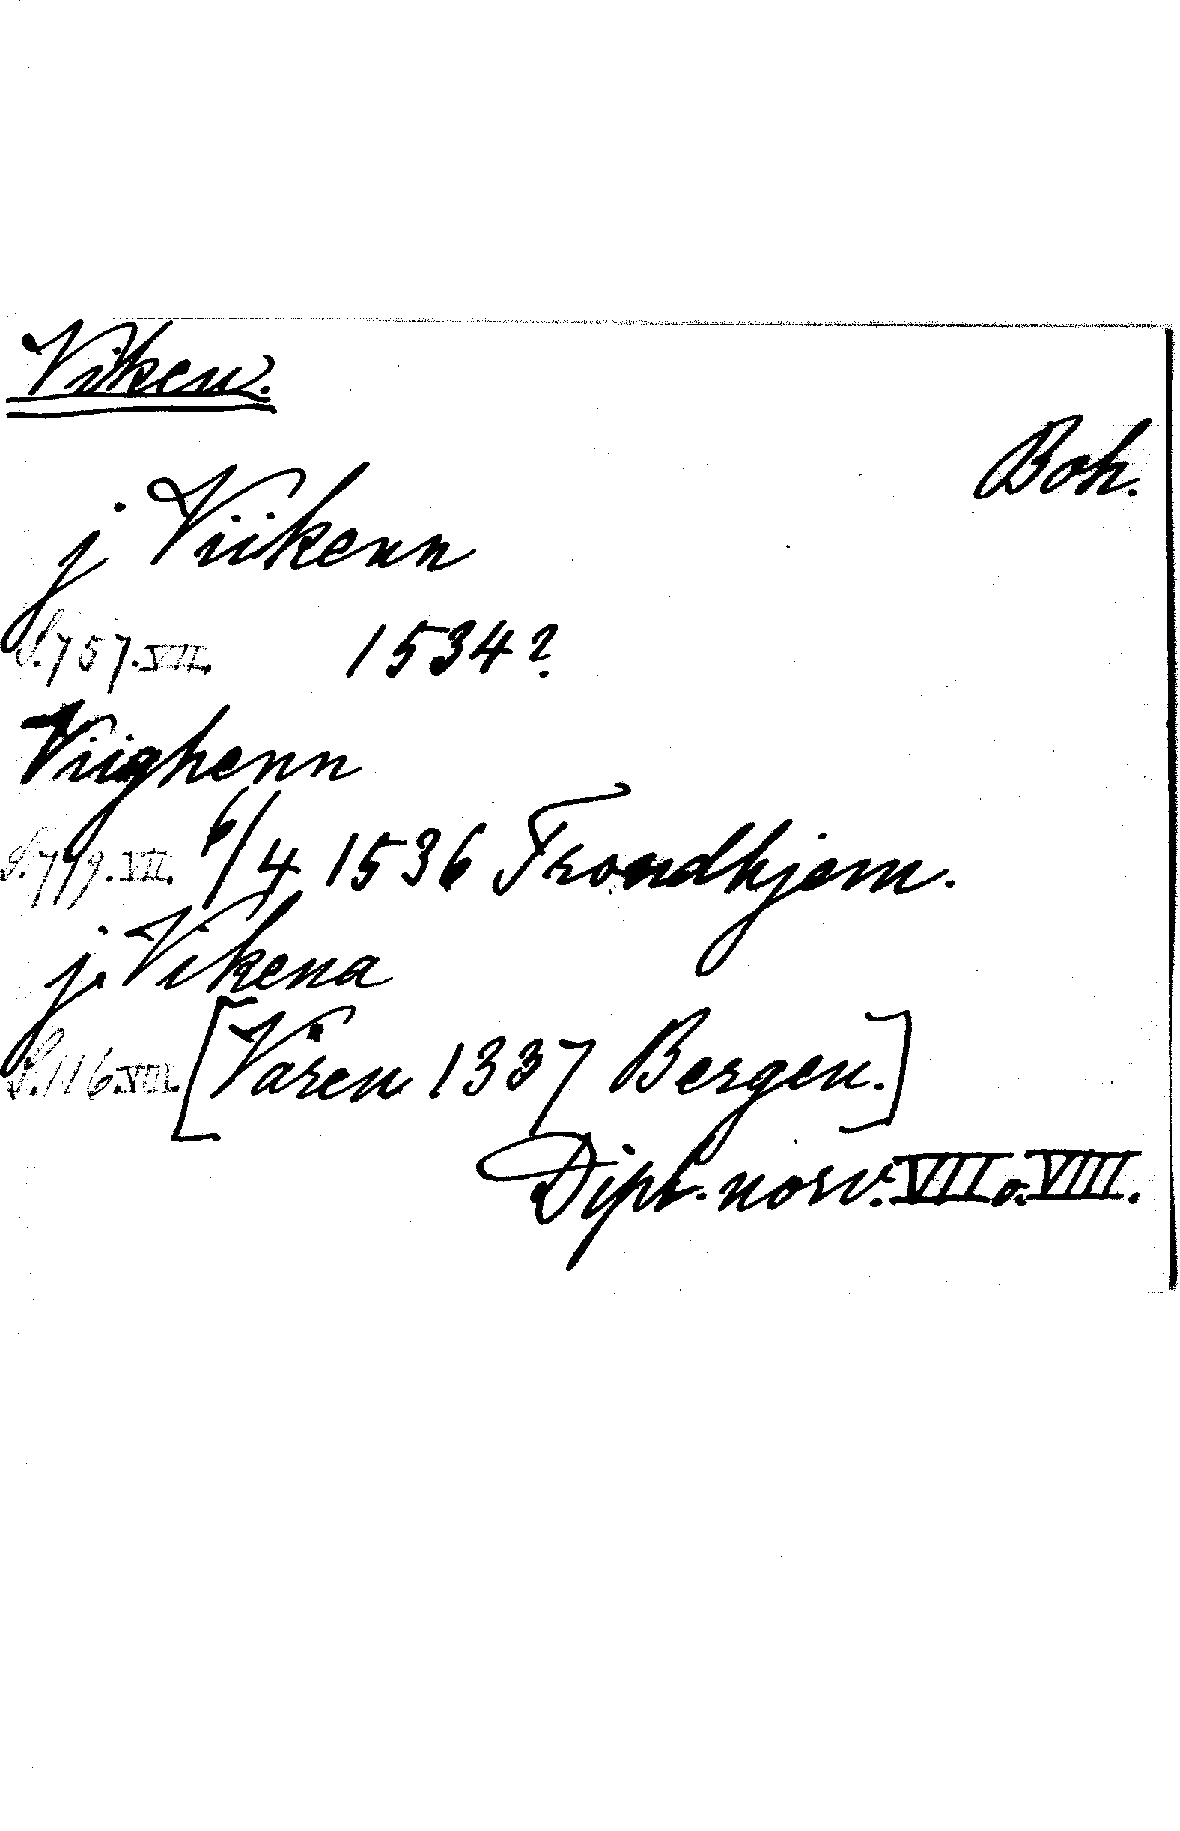 Viken.
Boh.
j Viikenn
S. 757. VII. 1534?
Viighenn
S. 779. VII. 6/4 1536 Trondhjem.
j. Vikena
S. 116. VIII. [Våren 1337 Bergen.]
Dipl. norv. VII o. VIII.